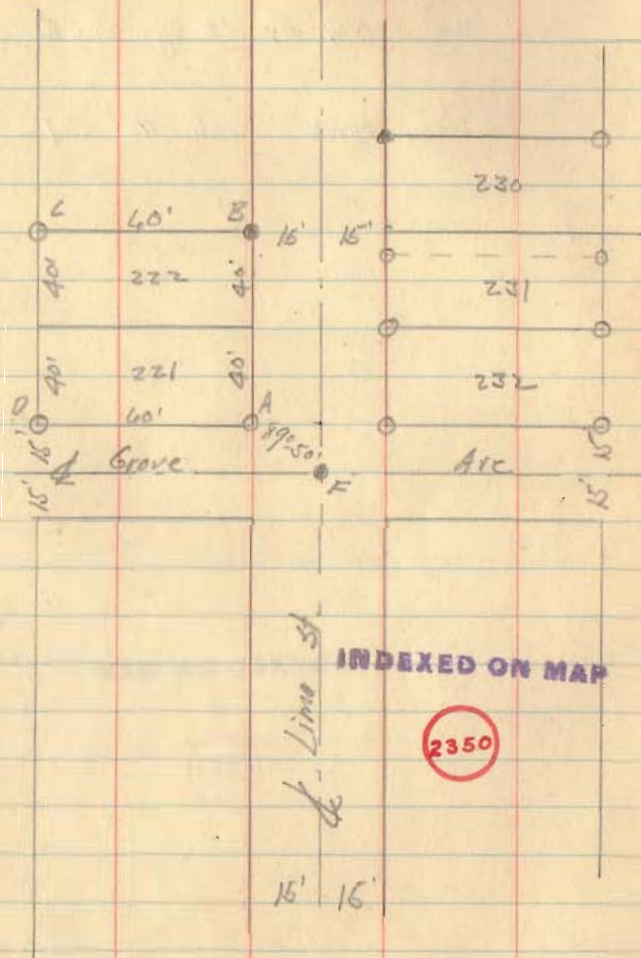 230
C 40' B 15' 15'
40' 222 40'
231
40' 221 40'
232
D 40' A
89°-50'
15' 15'
℄ Grove Ave
15' F 15'
℄ Lime St
INDEXED ON MAP
2350
15' 15'